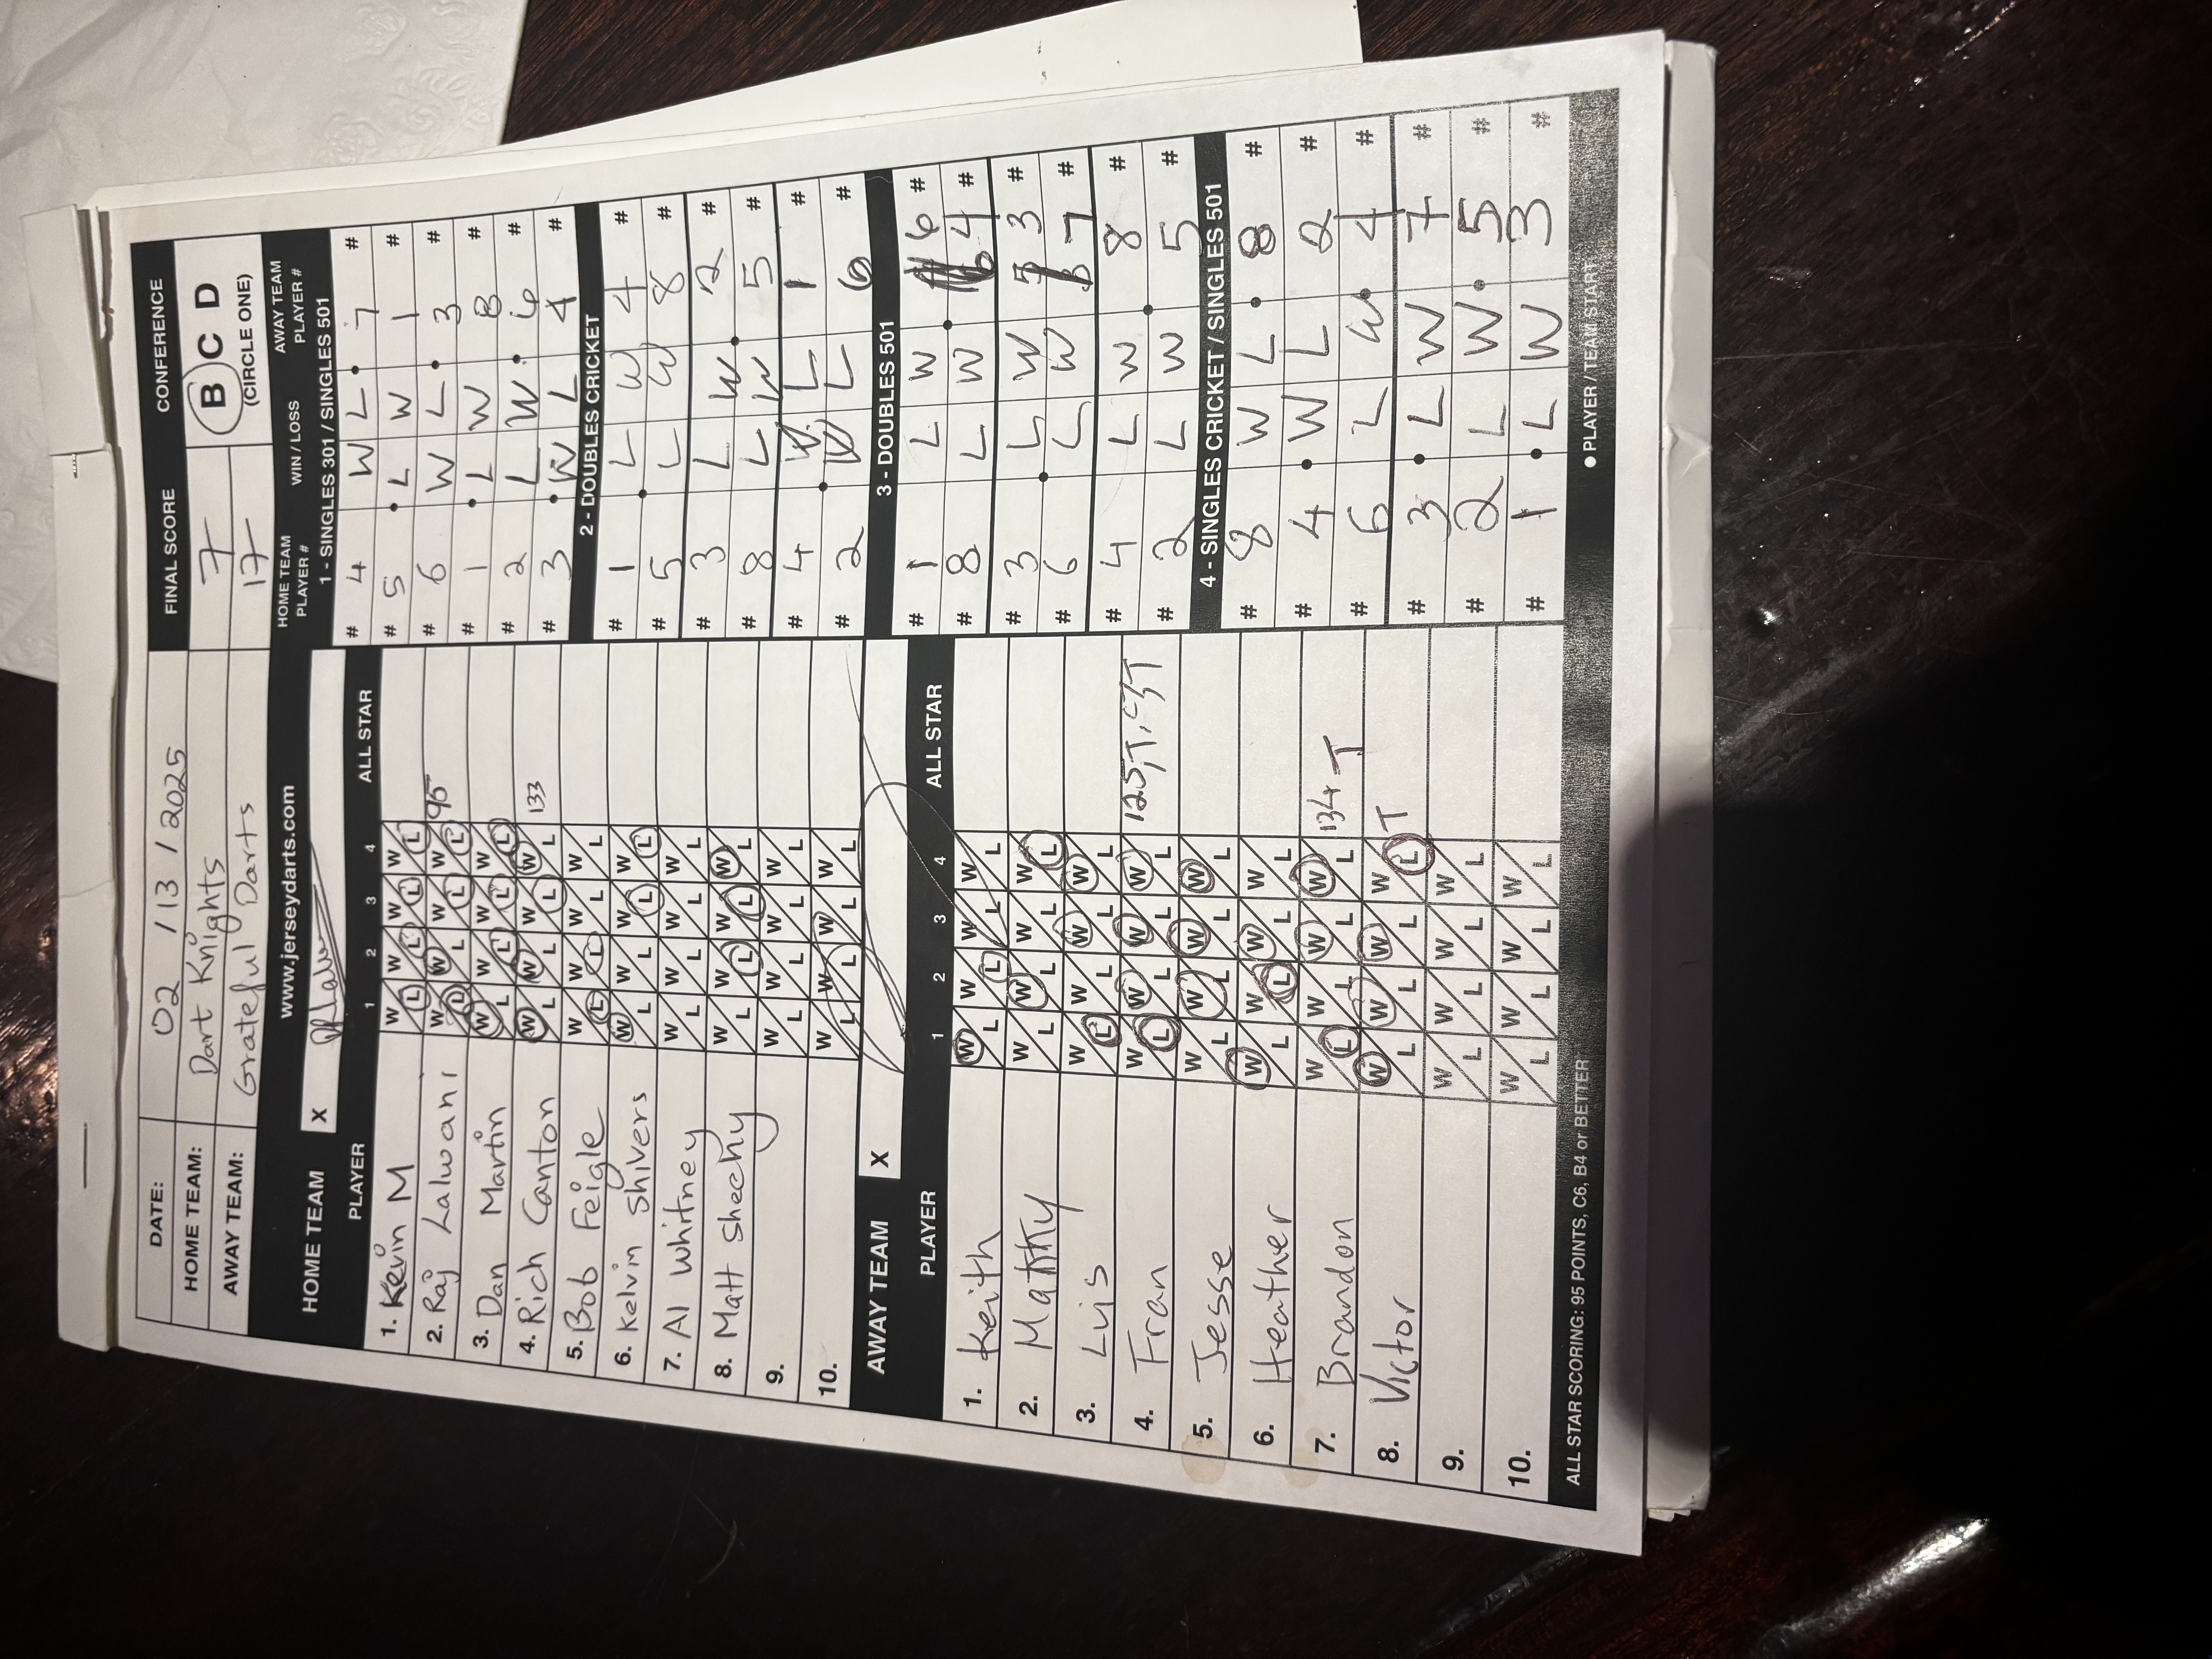 DATE: 02 / 13 / 2025 FINAL SCORE CONFERENCE
HOME TEAM: Dart Knights 7 B C D
AWAY TEAM: Grateful Darts 17 (CIRCLE ONE)
www.jerseydarts.com
HOME TEAM X
PLAYER 1 2 3 4 ALL STAR
1. Kevin M W L W L W L W L
2. Raj Lalwani W L W L W L W L 95
3. Dan Martin W L W L W L W L
4. Rich Canton W L W L W L W L 133
5. Bob Feigle W L W L W L W L
6. Kelvin Shivers W L W L W L W L
7. Al Whitney W L W L W L W L
8. Matt Shechy W L W L W L W L
9. W L W L W L W L
10. W L W L W L W L
AWAY TEAM X
PLAYER 1 2 3 4 ALL STAR
1. Keith W L W L W L W L
2. Matty W L W L W L W L
3. Luis W L W L W L W L
4. Fran W L W L W L W L 125, T,
5. Jesse W L W L W L W L
6. Heather W L W L W L W L
7. Brandon W L W L W L W L 134 T
8. Victor W L W L W L W L T
9. W L W L W L W L
10. W L W L W L W L
ALL STAR SCORING: 95 POINTS, C6, B4 or BETTER
HOME TEAM PLAYER # WIN / LOSS AWAY TEAM PLAYER #
1 - SINGLES 301 / SINGLES 501
# 4 W L 7 #
# 5 L W 1 #
# 6 W L 3 #
# 1 L W 8 #
# 2 L W 6 #
# 3 W L 4 #
2 - DOUBLES CRICKET
# 1 L W 4 #
# 5 L W 8 #
# 3 L W 2 #
# 8 L W 5 #
# 4 W L 1 #
# 2 W L 6 #
3 - DOUBLES 501
# 1 L W 6 #
# 8 L W 4 #
# 3 L W 3 #
# 6 L W 7 #
# 4 L W 8 #
# 2 L W 5 #
4 - SINGLES CRICKET / SINGLES 501
# 8 W L 8 #
# 4 W L 2 #
# 6 L W 4 #
# 3 L W 7 #
# 2 L W 5 #
# 1 L W 3 #
● PLAYER / TEAM START